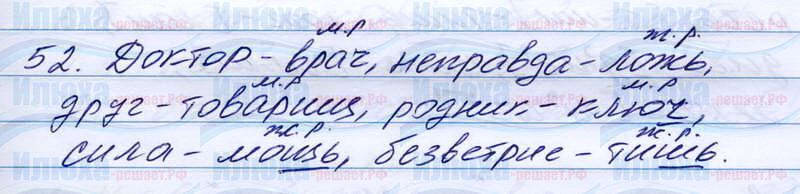 м.р. ж.р.
52. Доктор - врач, неправда - ложь,
м.р. м.р.
друг - товарищ, родник - ключ,
ж.р. ж.р.
сила - мощь, безветрие - тишь.